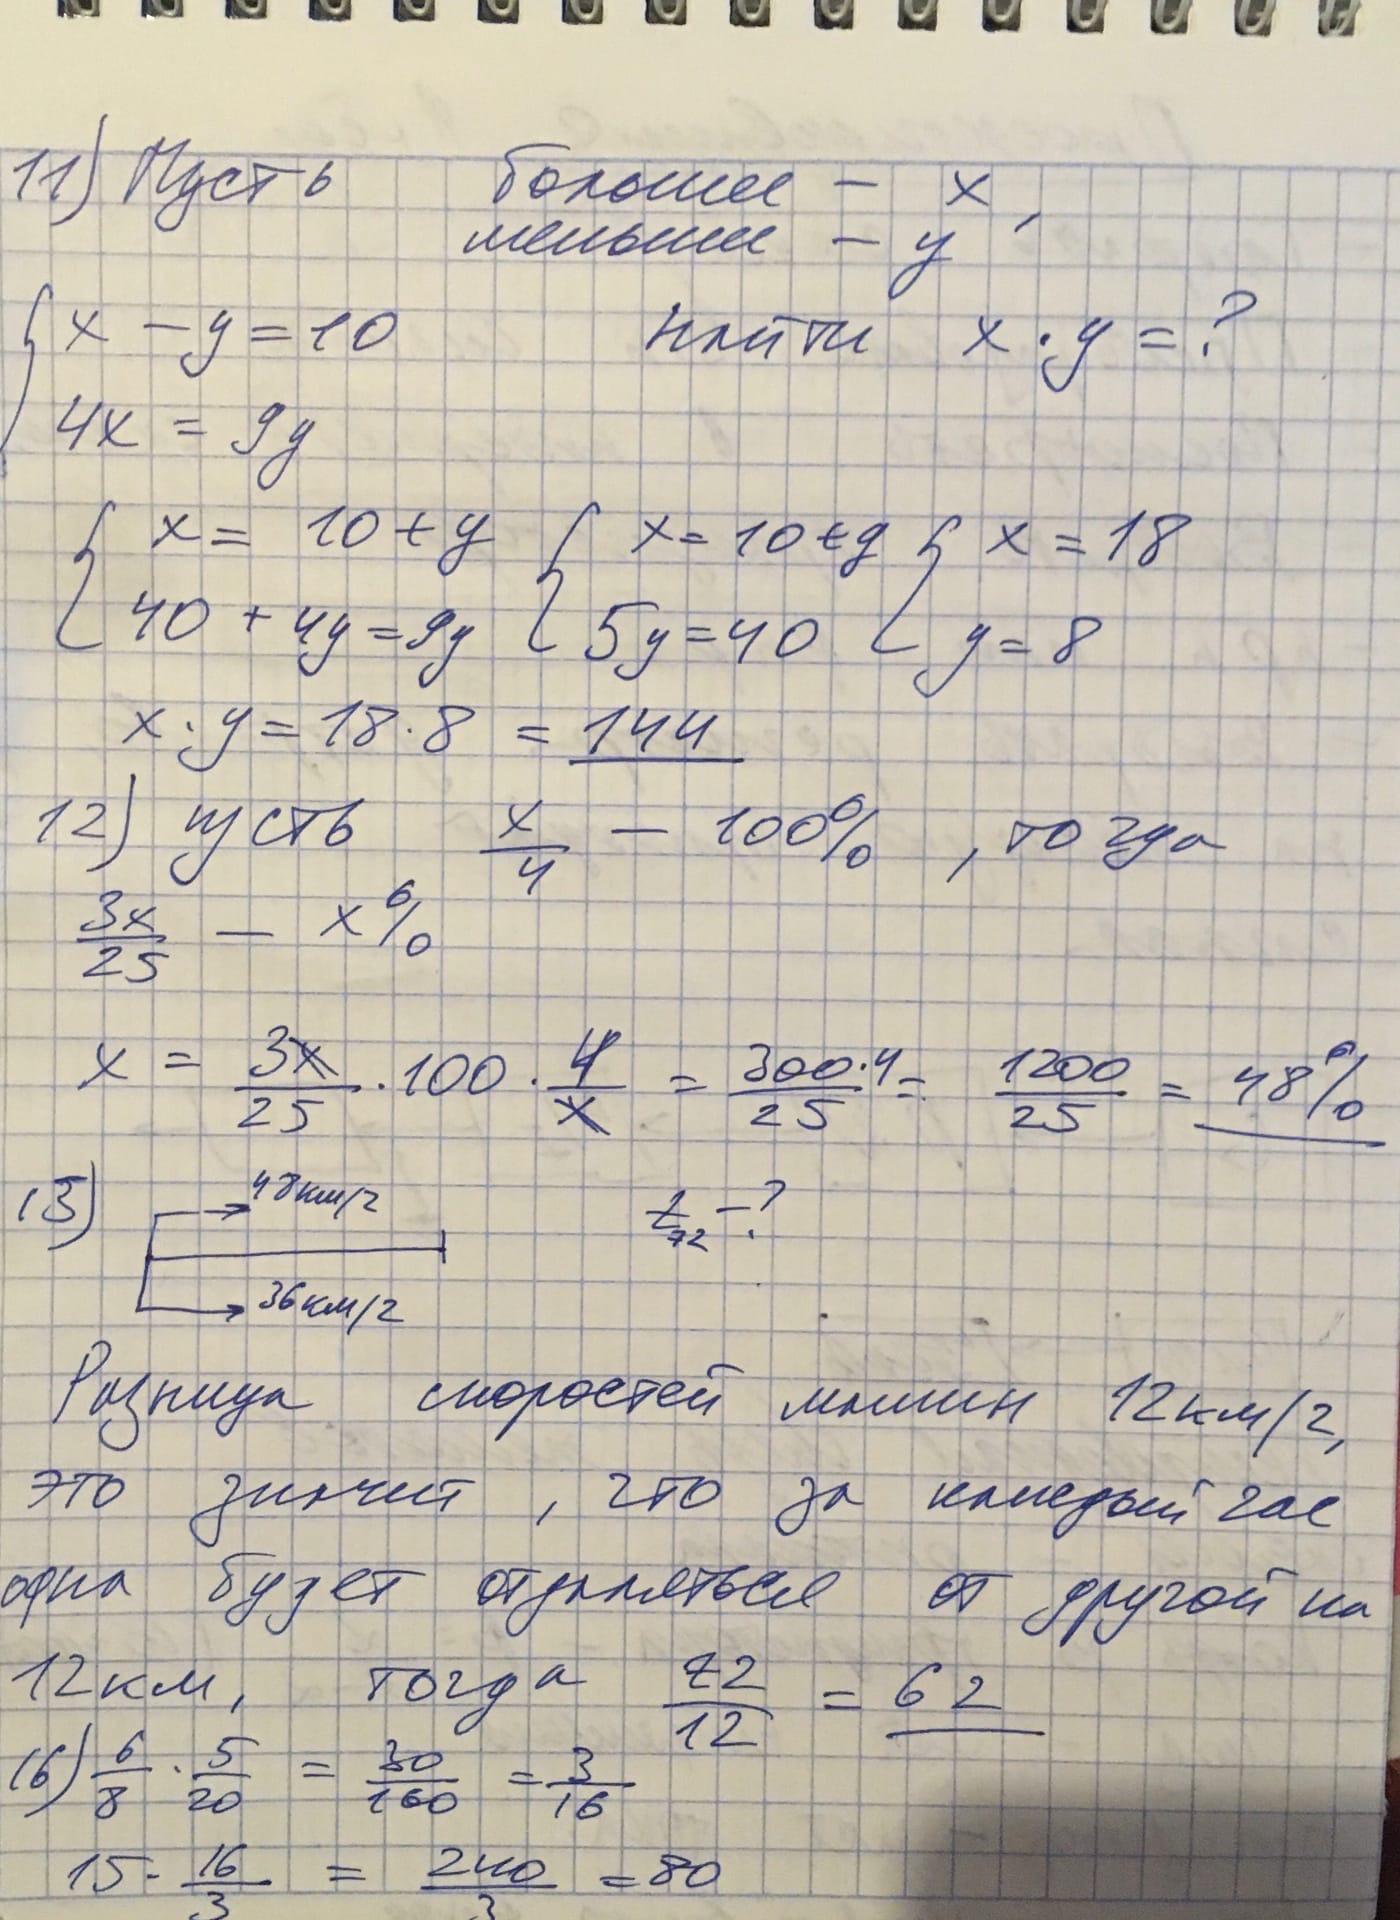 11) Пусть большее – x,
меньшее – y
{ x – y = 10 найти x · y = ?
4x = 9y
{ x = 10 + y { x = 10 + y { x = 18
40 + 4y = 9y 5y = 40 y = 8
x · y = 18 · 8 = 144
12) пусть x/4 – 100%, тогда
3x/25 – x%
x = 3x/25 · 100 · 4/x = 300·4/25 = 1200/25 = 48%
13) 48км/г t72 – ?
36км/г
Разница скоростей машин 12км/г,
это значит, что за каждый час
одна будет отдаляться от другой на
12км, тогда 72/12 = 6г
16) 6/8 · 5/20 = 30/160 = 3/16
15 · 16/3 = 240/3 = 80